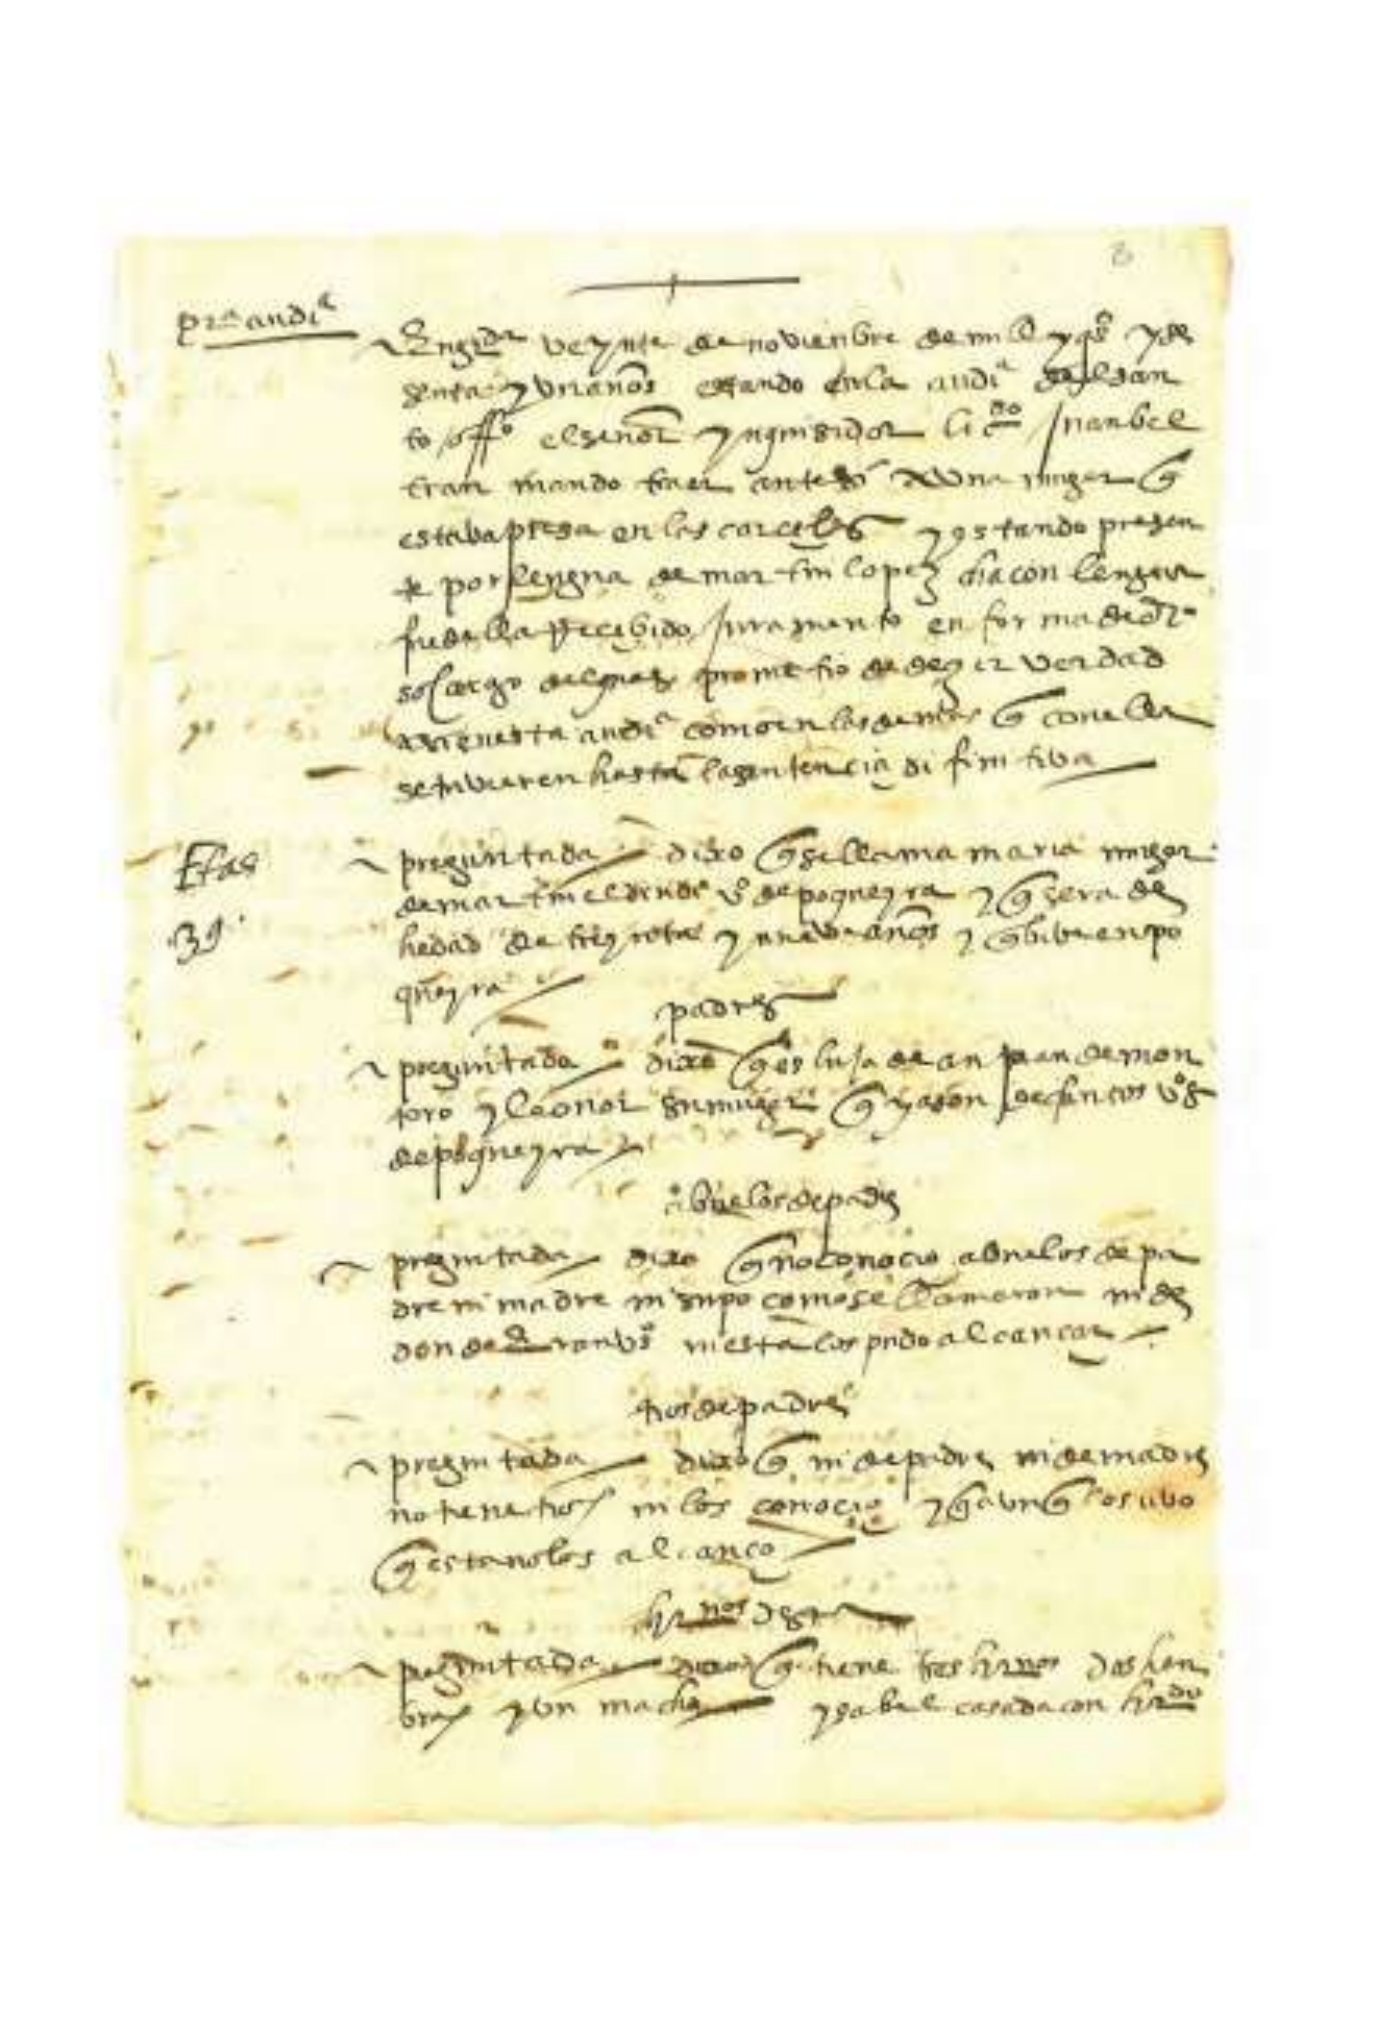 8
prª audiª
En grda veynte de novienbre de mill y qºs y se
senta y un años estando en la audiª del san
to offº el señor ynquisidor licdo Juan bel
tran mando traer ante si a una muger q
estava presa en las carceles y estando presen
te por lengua de martin lopez diacon lengua
fue della Recebido Juramento en forma de drº
so cargo del qual prometio de dezir verdad
en esta audiª como en las demas q con ella
se tuvieren hasta la sentencia difinitiva
Etas
39
preguntada dixo q se llama maria muger
de martin el dindi vº de poqueyra y q sera de
hedad de treynta y nueve años y q bibe en po
queyra
padres
preguntada dixo q es hija de Juan de mon
toro y leonor su muger q ya son defuntos vºs
de poqueyra
abuelos de padre
preguntada dixo q no conocio abuelos de pa
dre ni madre ni supo como se llamaron ni de
donde eran vºs ni esta los pudo alcançar
tios de padre
preguntada dixo q ni de padre ni de madre
no tiene tios ni los conocio y q aunq los uvo
q esta no los alcanço
hrnos desta
preguntada dixo q tiene tres hrnos dos hen
bras y un macho ysabel casada con hrdo